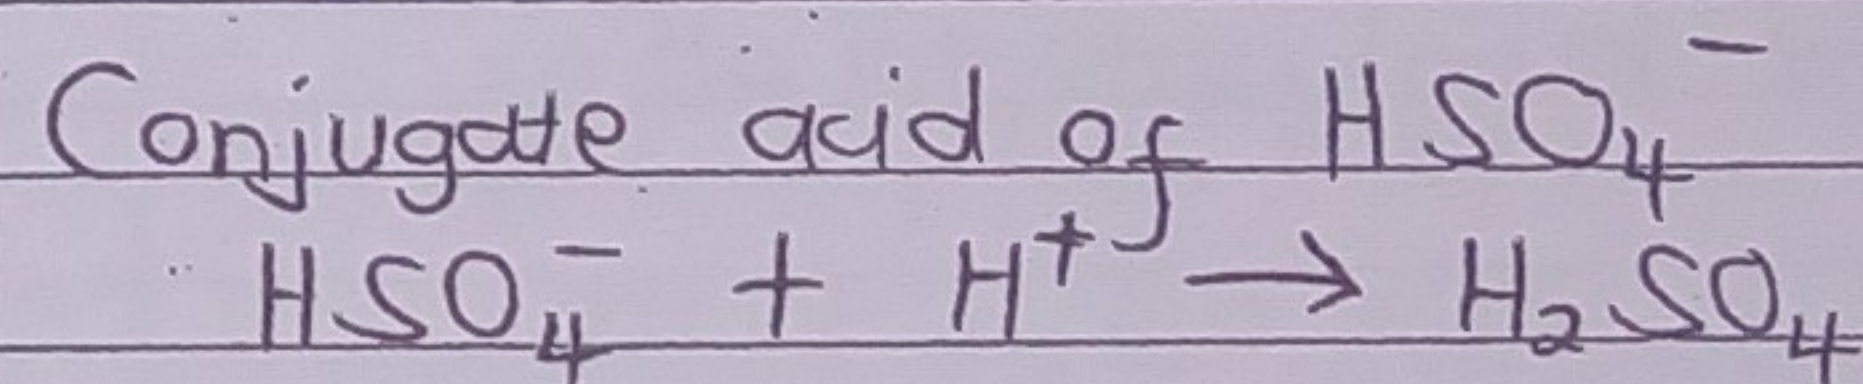 Conjugate acid of HSO₄⁻
HSO₄⁻ + H⁺ → H₂SO₄